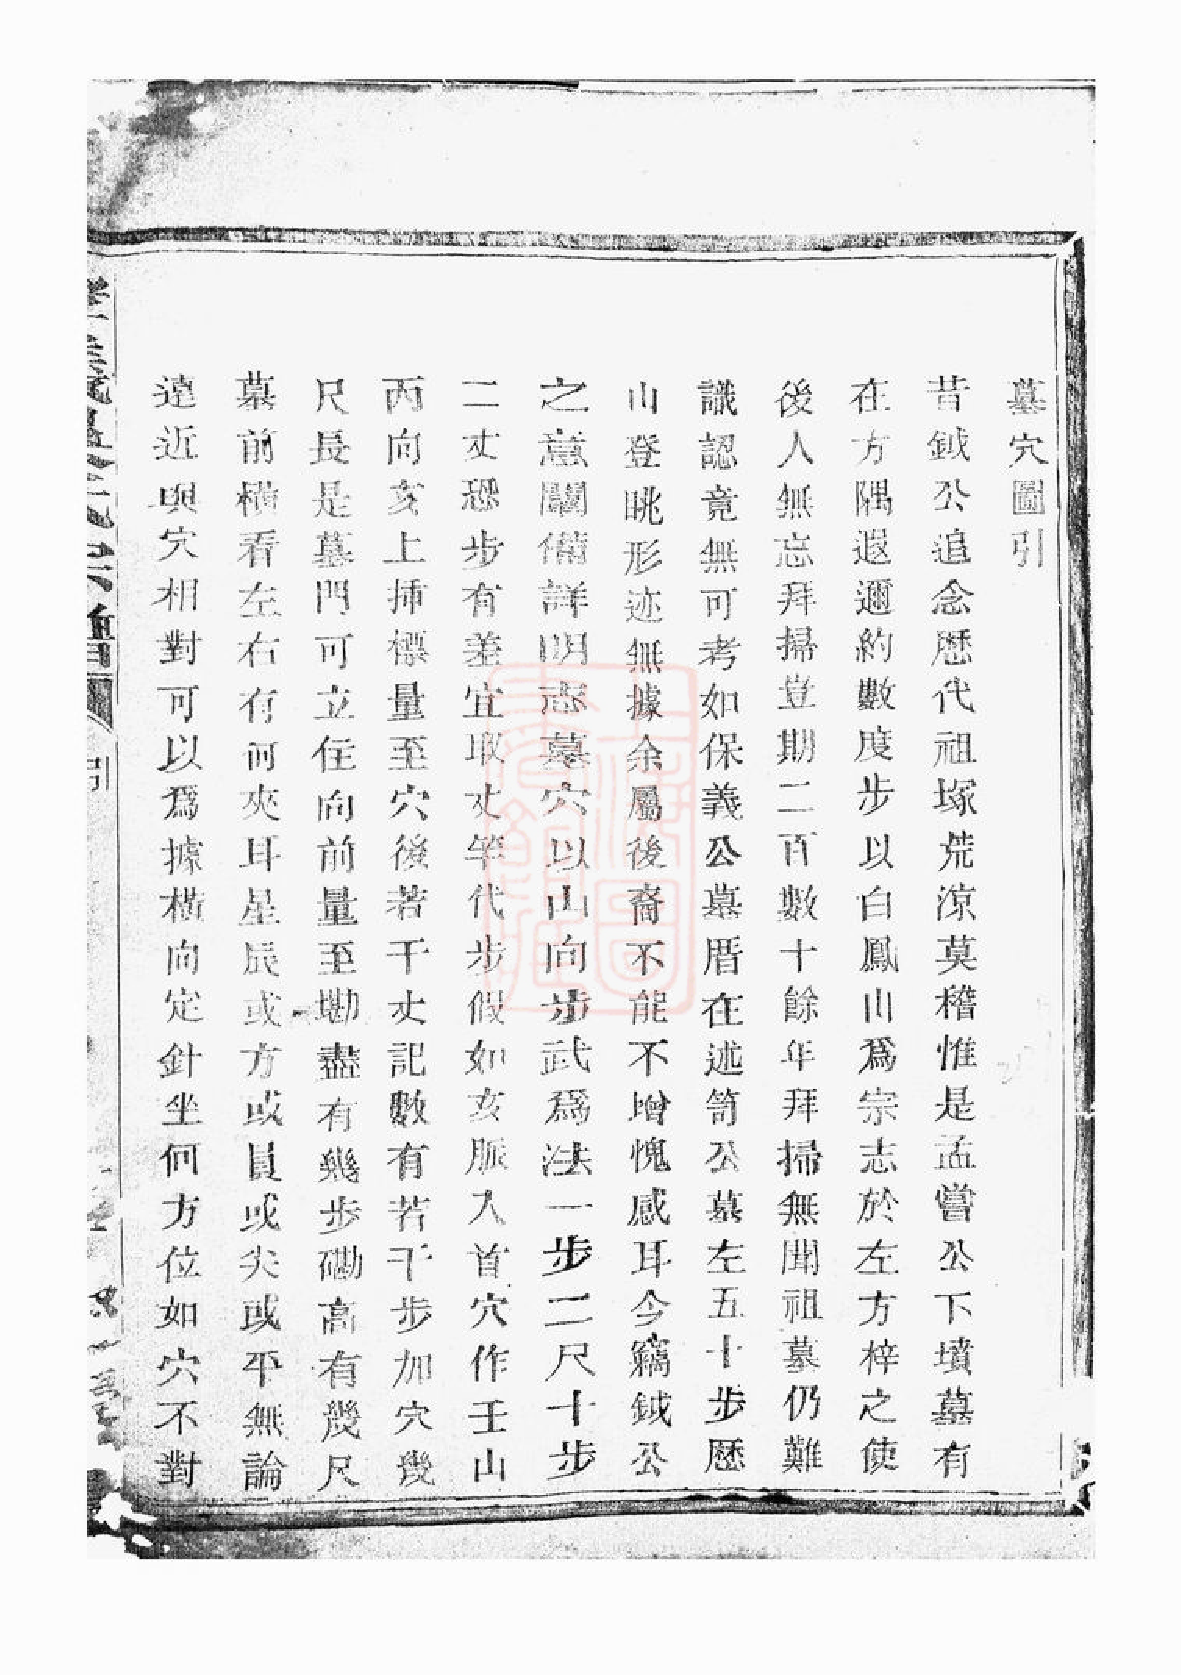 墓穴圖引
昔鉞公追念歷代祖塚荒涼莫稽惟是孟嘗公下墳墓有
在方隅遐邇約數度步以白鳳山爲宗志於左方梓之使
後人無忘拜掃豈期二百數十餘年拜掃無聞祖墓仍難
識認竟無可考如保義公墓厝在述笥公墓左五十步歷
山登眺形迹無據余屬後裔不能不增愧感耳今竊鉞公
之意闡備詳明志墓穴以山向步武爲法一步二尺十步
二丈恐步有差宜取丈竿代步假如亥脈入首穴作壬山
丙向亥上揷標量至穴後若干丈記數有若干步加穴幾
尺長是墓門可立住向前量至磡盡有幾步磡高有幾尺
墓前橫看左右有何夾耳星辰或方或員或尖或平無論
遠近與穴相對可以爲據橫向定針坐何方位如穴不對
宗譜
引